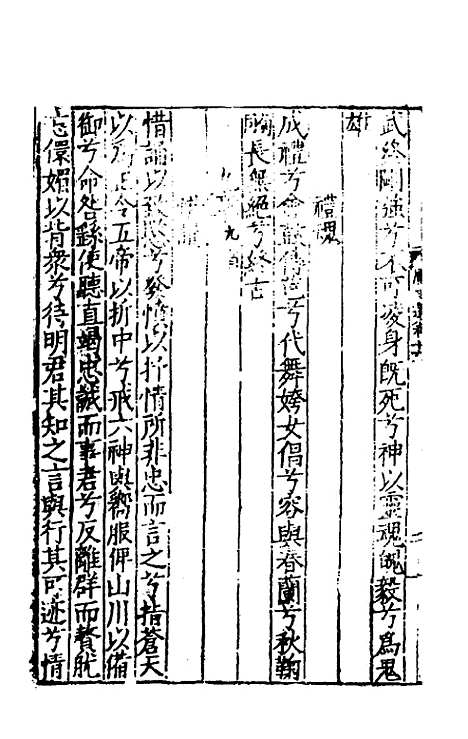 武終剛強兮不可凌身既死兮神以靈魂魄毅兮爲鬼
雄
禮魂
成禮兮會鼓傳芭兮代舞姱女倡兮容與春蘭兮秋鞠
長無絕兮終古
九
惜誦以致愍兮發憤以抒情所非忠而言之兮指蒼天
以爲正令五帝以折中兮戒六神與嚮服俾山川以備
御兮命咎繇使聽直竭忠誠而事君兮反離群而贅肬
忘儇媚以背衆兮待明君其知之言與行其可迹兮情